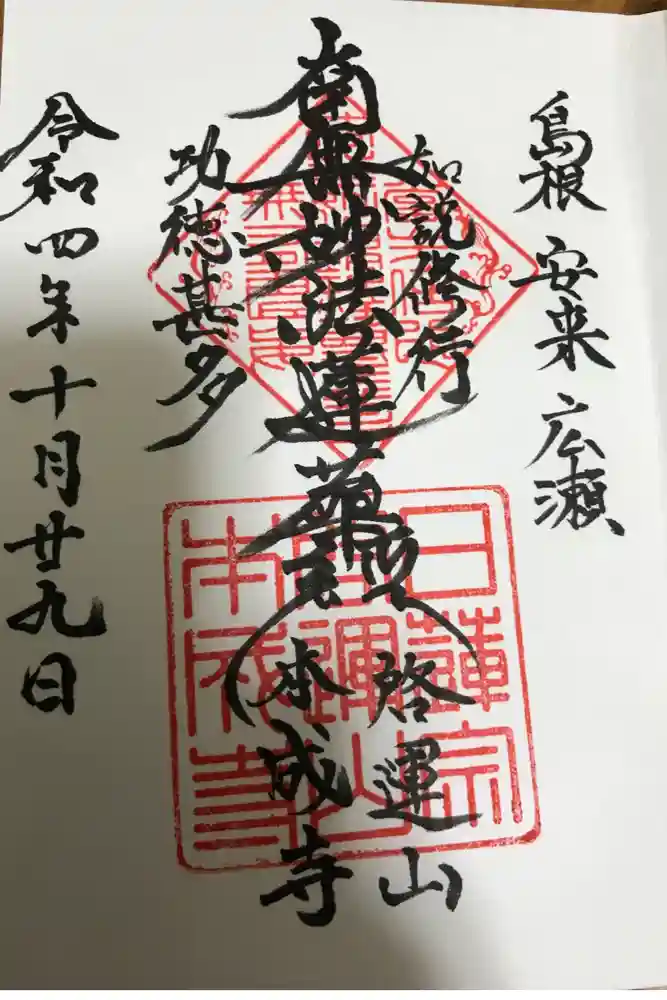 島根 安来 広瀬
如説修行
南無妙法蓮華経
功徳甚多
啓運山
本成寺
令和四年十月廿九日
日蓮宗
啓運山
本成寺